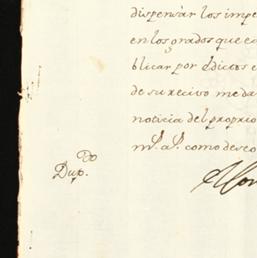 dispensar los impe
en los grados que e
blicar por Edictos e
de su recivo me da
noticia del proprio
m.s a.s como deseo
Dup.do